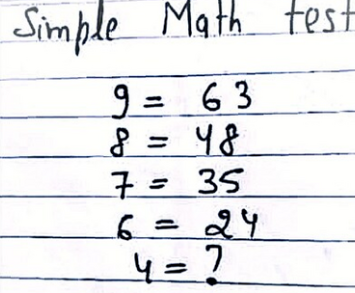 Simple Math test
9 = 63
8 = 48
7 = 35
6 = 24
4 = ?